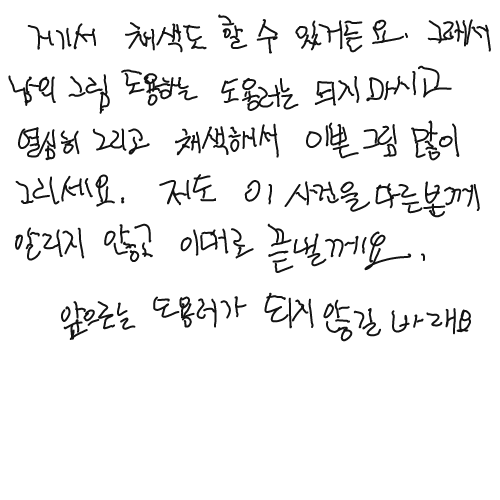 거기서 채색도 할 수 있거든요. 그래서
남의 그림 도용하는 도용러는 되지 마시고
열심히 그리고 채색해서 이쁜 그림 많이
그리세요. 저도 이 사건을 다른분께
알리지 않고 이대로 끝낼께요.
앞으로는 도용러가 되지 않길 바래요